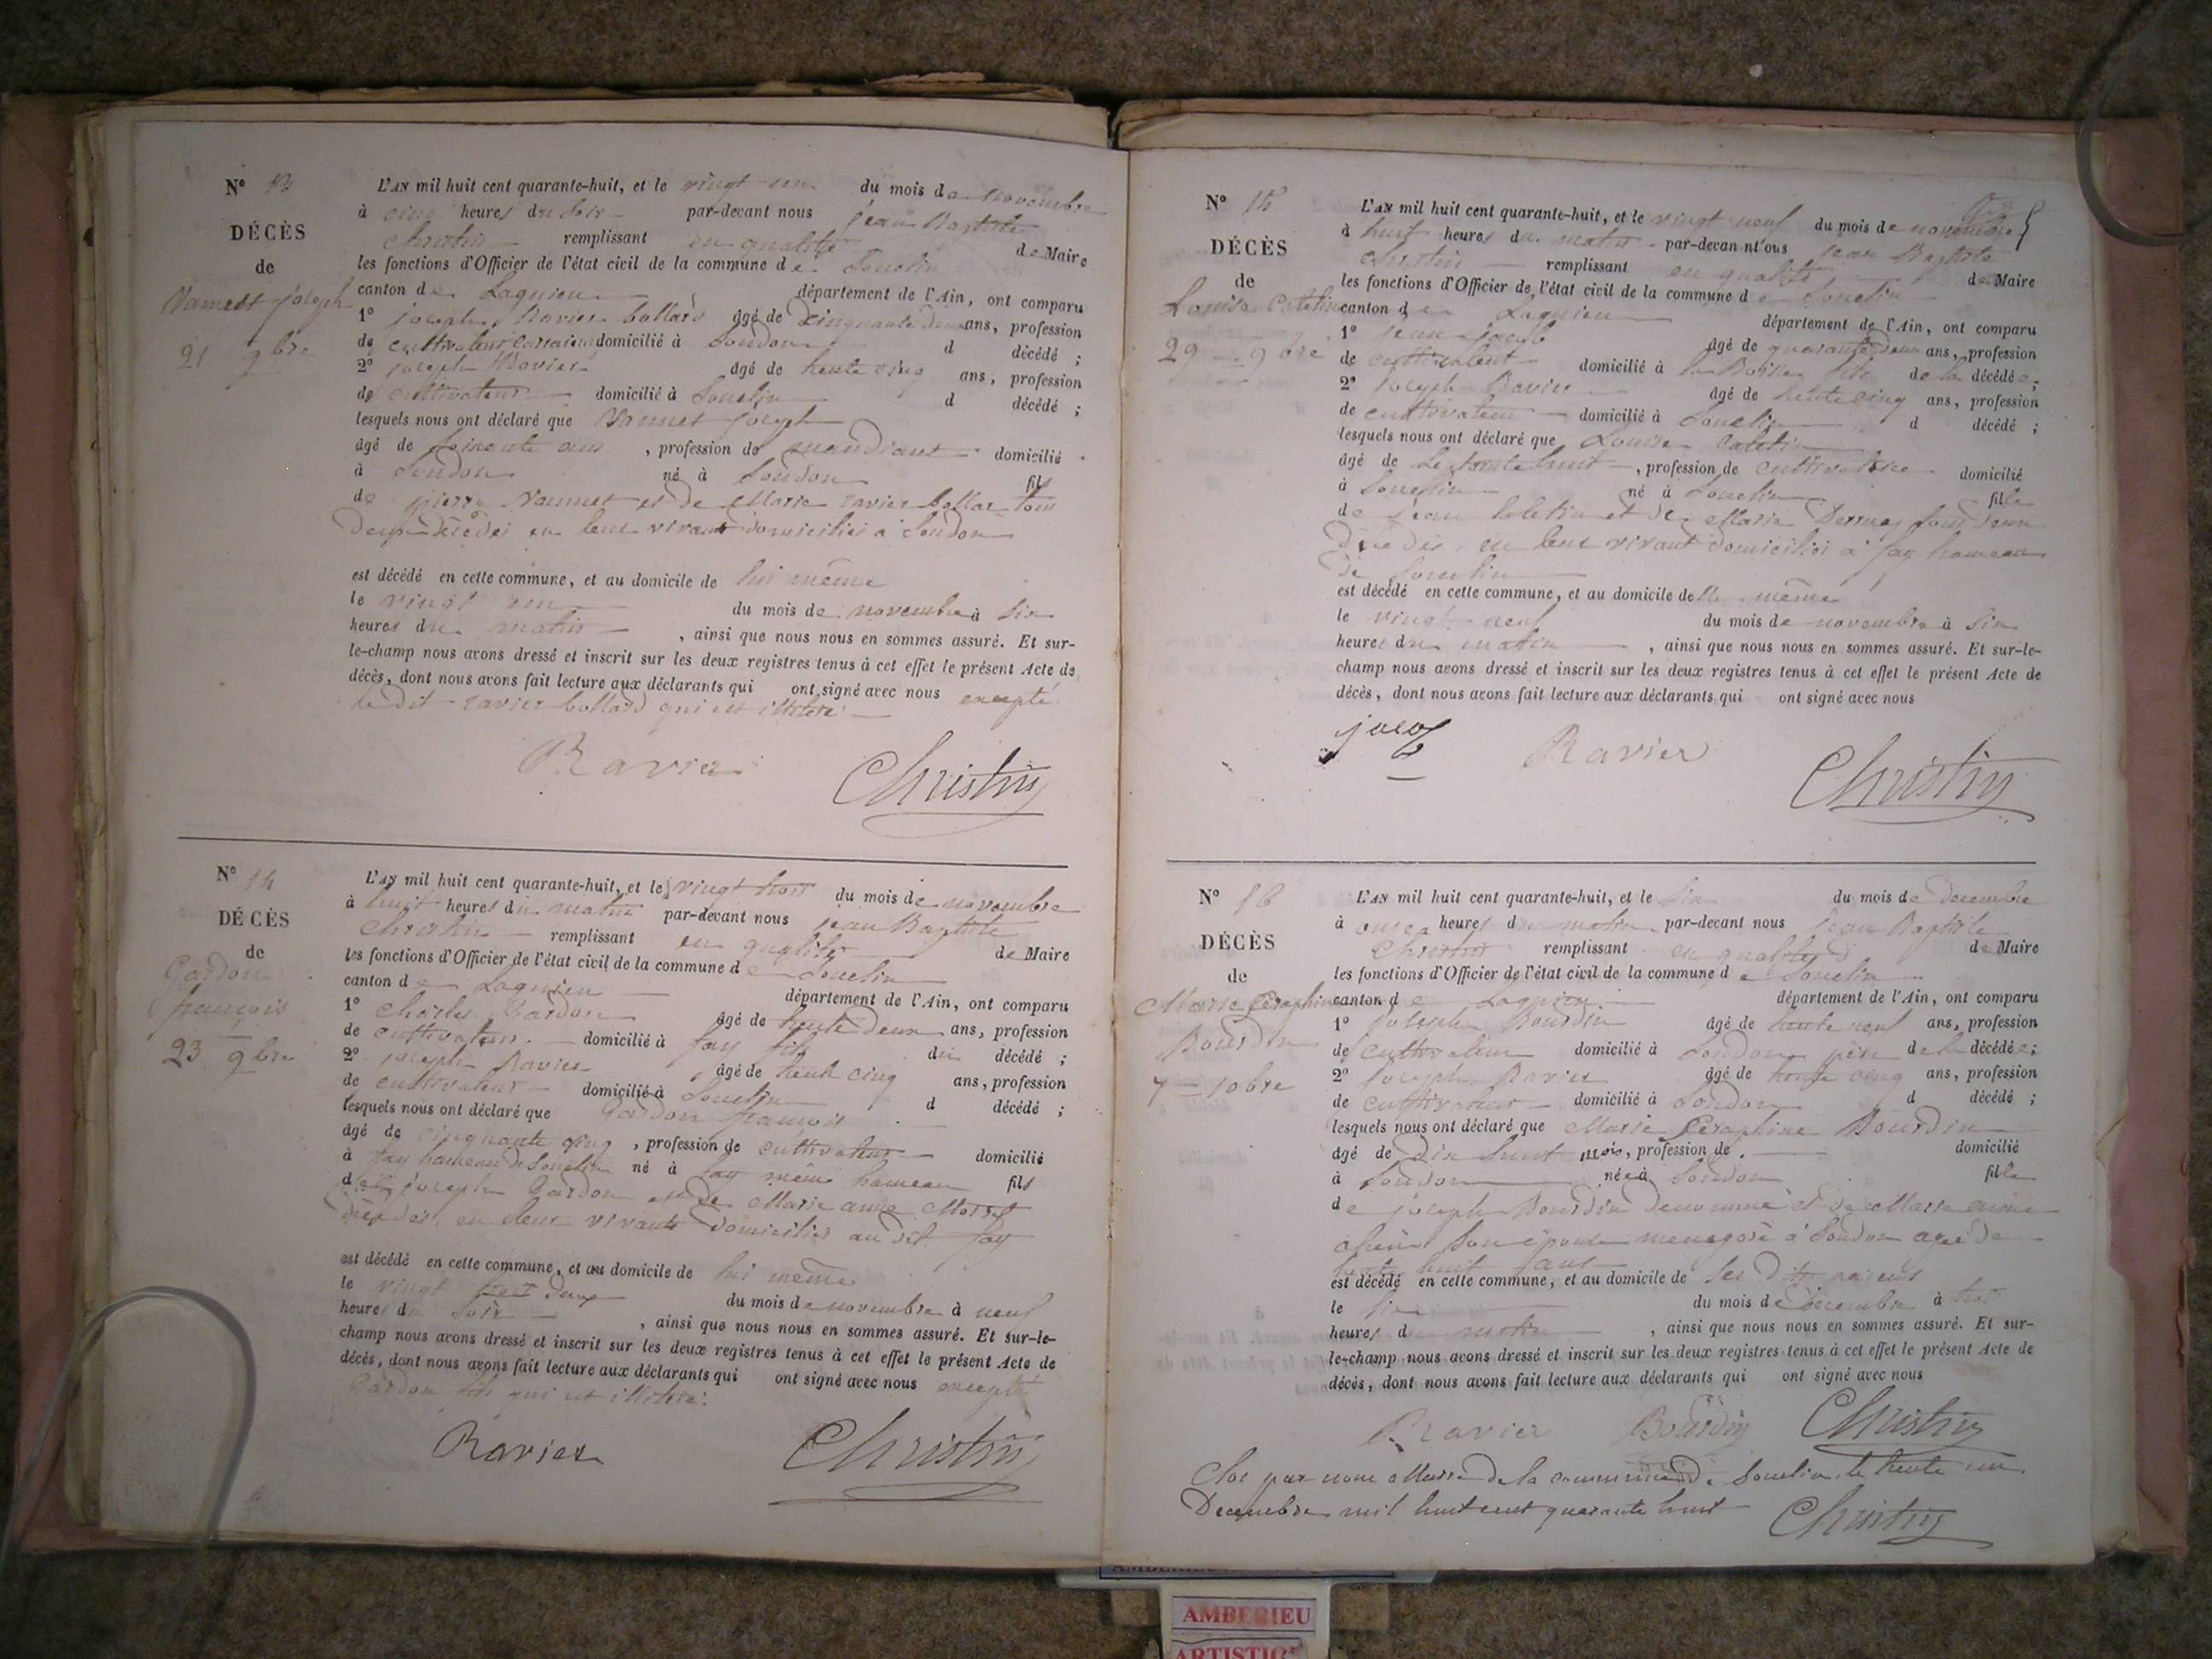 N° 13
DÉCÈS
de
Vannet joseph
21 9bre
L'AN mil huit cent quarante-huit, et le vingt-un du mois de novembre
à cinq heures du soir par-devant nous jean Baptiste
Christin remplissant en qualité de Maire
les fonctions d'Officier de l'état civil de la commune de Souclin
canton de Lagnieu département de l'Ain, ont comparu
1° joseph Ravier bollard âgé de Cinquante deux ans, profession
de cultivateur domicilié à Soudon d décédé ;
2° joseph Ravier âgé de trente cinq ans, profession
de cultivateur domicilié à Souclin d décédé ;
lesquels nous ont déclaré que Vannet joseph
âgé de soixante ans, profession de mandiant domicilié
à Soudon né à Soudon fils
de pierre Vannet et de Marie ravier bollar tous
deux décédés en leur vivant domiciliés à Soudon
est décédé en cette commune, et au domicile de lui même
le vingt un du mois de novembre à six
heures du matin, ainsi que nous nous en sommes assuré. Et sur-
le-champ nous avons dressé et inscrit sur les deux registres tenus à cet effet le présent Acte de
décès, dont nous avons fait lecture aux déclarants qui ont signé avec nous excepté
le dit ravier bollard qui est illitéré
Ravier Christin
N° 14
DÉCÈS
de
Gardon
françois
23 9bre
L'AN mil huit cent quarante-huit, et le vingt trois du mois de novembre
à huit heures du matin par-devant nous jean Baptiste
Christin remplissant en qualité de Maire
les fonctions d'Officier de l'état civil de la commune de Souclin
canton de Lagnieu département de l'Ain, ont comparu
1° Charles Gardon âgé de trente deux ans, profession
de cultivateur domicilié à fay fils du décédé ;
2° joseph Ravier âgé de trente cinq ans, profession
de cultivateur domicilié à Souclin d décédé ;
lesquels nous ont déclaré que Gardon françois
âgé de cinquante cinq, profession de cultivateur domicilié
à fay hameau de Souclin né à fay même hameau fils
de joseph Gardon et de Marie anne
décédés en leur vivant domiciliés au dit fay
est décédé en cette commune, et au domicile de lui même
le vingt deux du mois de novembre à neuf
heures du soir, ainsi que nous nous en sommes assuré. Et sur-le-
champ nous avons dressé et inscrit sur les deux registres tenus à cet effet le présent Acte de
décès, dont nous avons fait lecture aux déclarants qui ont signé avec nous excepté
Gardon fils qui est illitéré.
Ravier Christin
N° 15
DÉCÈS
de
Louise Caletin
29 9bre
L'AN mil huit cent quarante-huit, et le vingt neuf du mois de novembre
à huit heures du matin par-devan nt'ous jean Baptiste
Christin remplissant en qualité de Maire
les fonctions d'Officier de l'état civil de la commune de Souclin
canton de Lagnieu département de l'Ain, ont comparu
1° jean jacob âgé de quarante deux ans, profession
de cultivateur domicilié à la Boisse fils de la décédée ;
2° joseph Ravier âgé de trente cinq ans, profession
de cultivateur domicilié à Souclin d décédé ;
lesquels nous ont déclaré que Louise Caletin
âgé de Septante huit, profession de cultivatrice domicilié
à Souclin né à Souclin fille
de jean Caletin et de Marie tous deux
décédés, en leur vivant domiciliés à fay hameau
de Souclin
est décédé en cette commune, et au domicile delle même
le vingt neuf du mois de novembre à six
heures du matin, ainsi que nous nous en sommes assuré. Et sur-le-
champ nous avons dressé et inscrit sur les deux registres tenus à cet effet le présent Acte de
décès, dont nous avons fait lecture aux déclarants qui ont signé avec nous
jacob Ravier Christin
N° 16
DÉCÈS
de
Marie Céraphine
Bourdin
7 10bre
L'AN mil huit cent quarante-huit, et le six du mois de Decembre
à onze heures du matin par-devant nous jean Baptiste
Christin remplissant en qualité de Maire
les fonctions d'Officier de l'état civil de la commune de Souclin
canton de Lagnieu département de l'Ain, ont comparu
1° joseph Bourdin âgé de trente neuf ans, profession
de cultivateur domicilié à Soudon père de la décédée;
2° joseph Ravier âgé de trente cinq ans, profession
de cultivateur domicilié à Soudon d décédé ;
lesquels nous ont déclaré que Marie Céraphine Bourdin
âgé de dix huit mois, profession de domicilié
à Soudon née à Soudon fille
de joseph Bourdin denommé et de Marie
son épouse menagère à Soudon agée de
trente huit ans
est décédé en cette commune, et au domicile de ses dits parents
le six du mois de decembre à trois
heures d matin, ainsi que nous nous en sommes assuré. Et sur-
le-champ nous avons dressé et inscrit sur les deux registres tenus à cet effet le présent Acte de
décès, dont nous avons fait lecture aux déclarants qui ont signé avec nous
Ravier Bourdin Christin
Clos par nous Maire de la commune de Souclin le trente un
Decembre mil huit cent quarante huit Christin
AMBERIEU
ARTISTIC